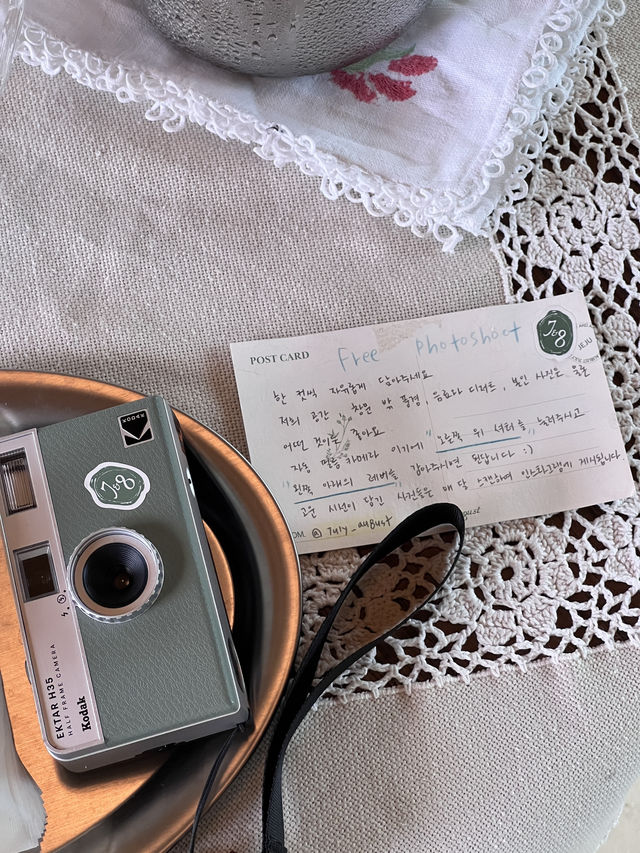 POST CARD
Free Photoshoot
7&8
JEJU
한 컷씩 자유롭게 담아주세요
저희 공간 창문 밖 풍경 음료나 디저트, 본인 사진은 물론
어떤 것이든 좋아요
자동 필름카메라 이기에 "오른쪽 위 셔터를" 눌러주시고
"왼쪽 아래의 레버를 감아주시면 된답니다 :)
고운 시선이 담긴 사진들은 매 달 스캔하여 인스타그램에 게시됩니다
DM. @ July_august
gust
KODAK
7&8
EKTAR H35
HALF FRAME CAMERA
Kodak